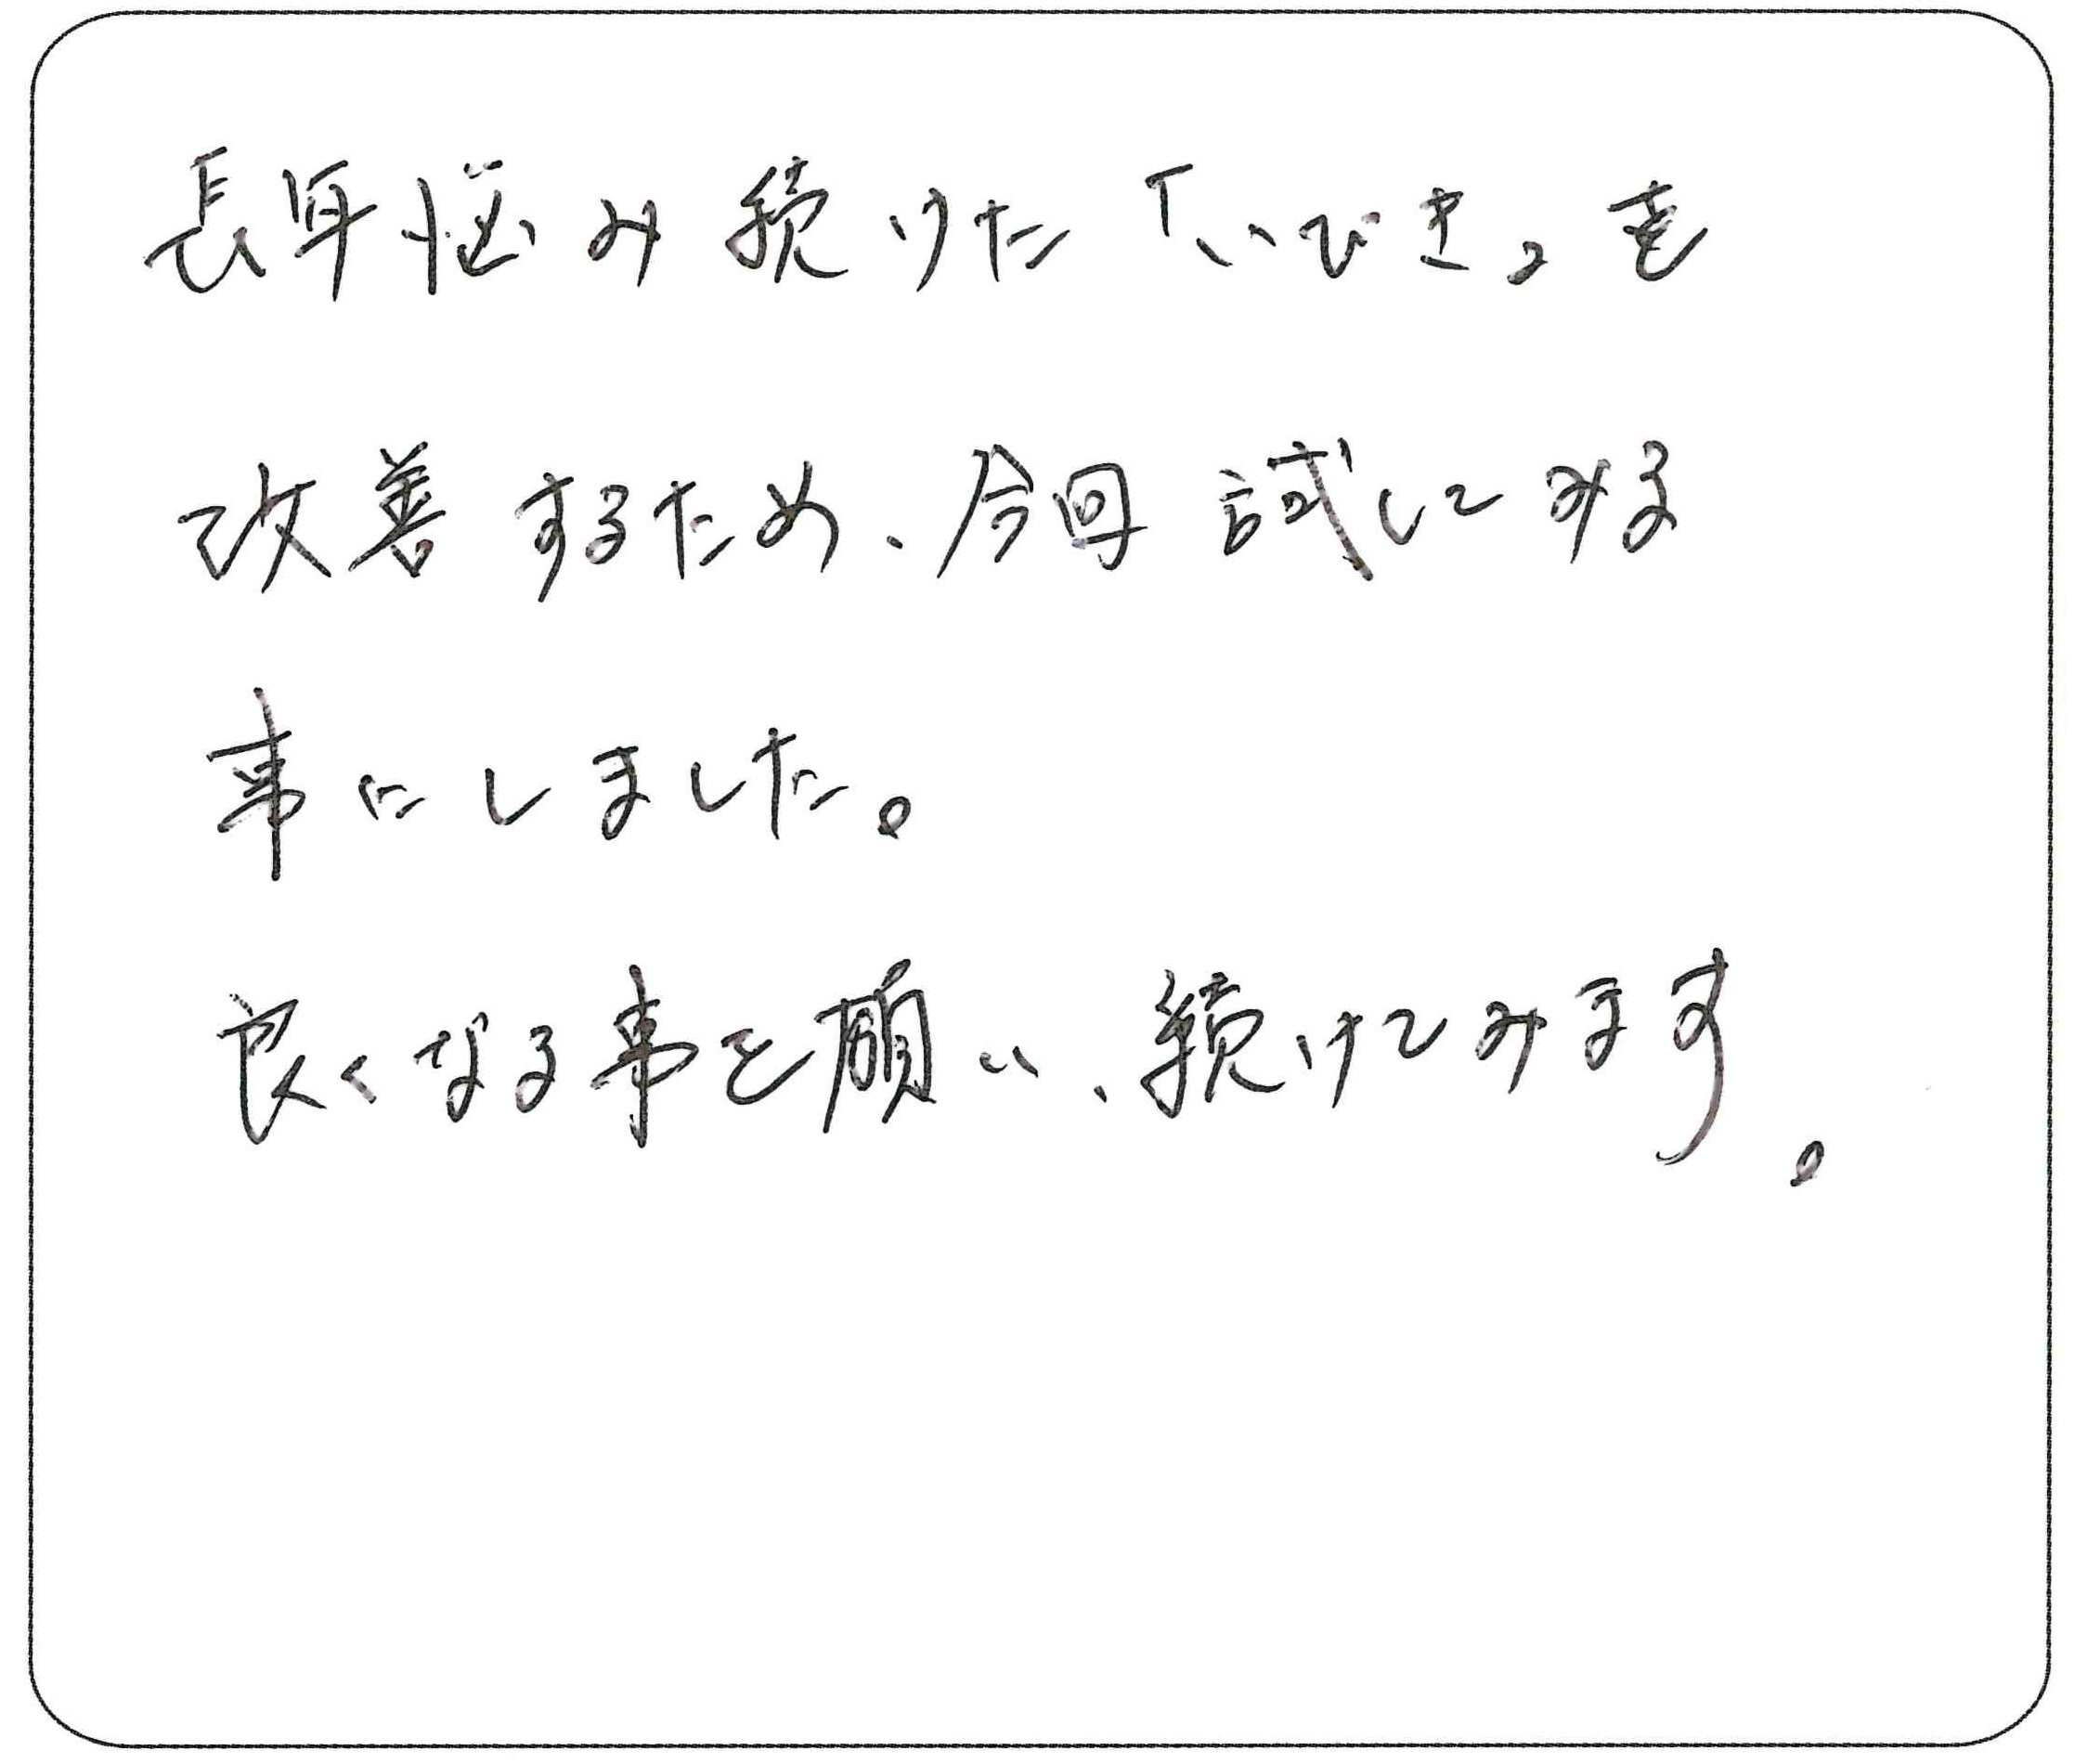 長年悩み続けた「いびき」を
改善するため、今回試してみる
事にしました。
良くなる事を願い、続けてみます。